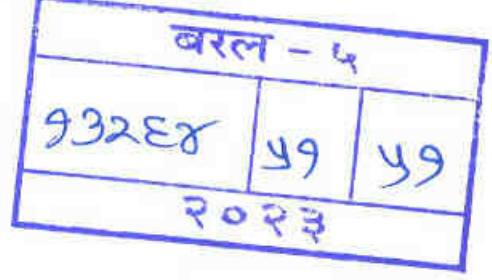 बरल - ५
१३२६४ ५१ ५१
२०२३